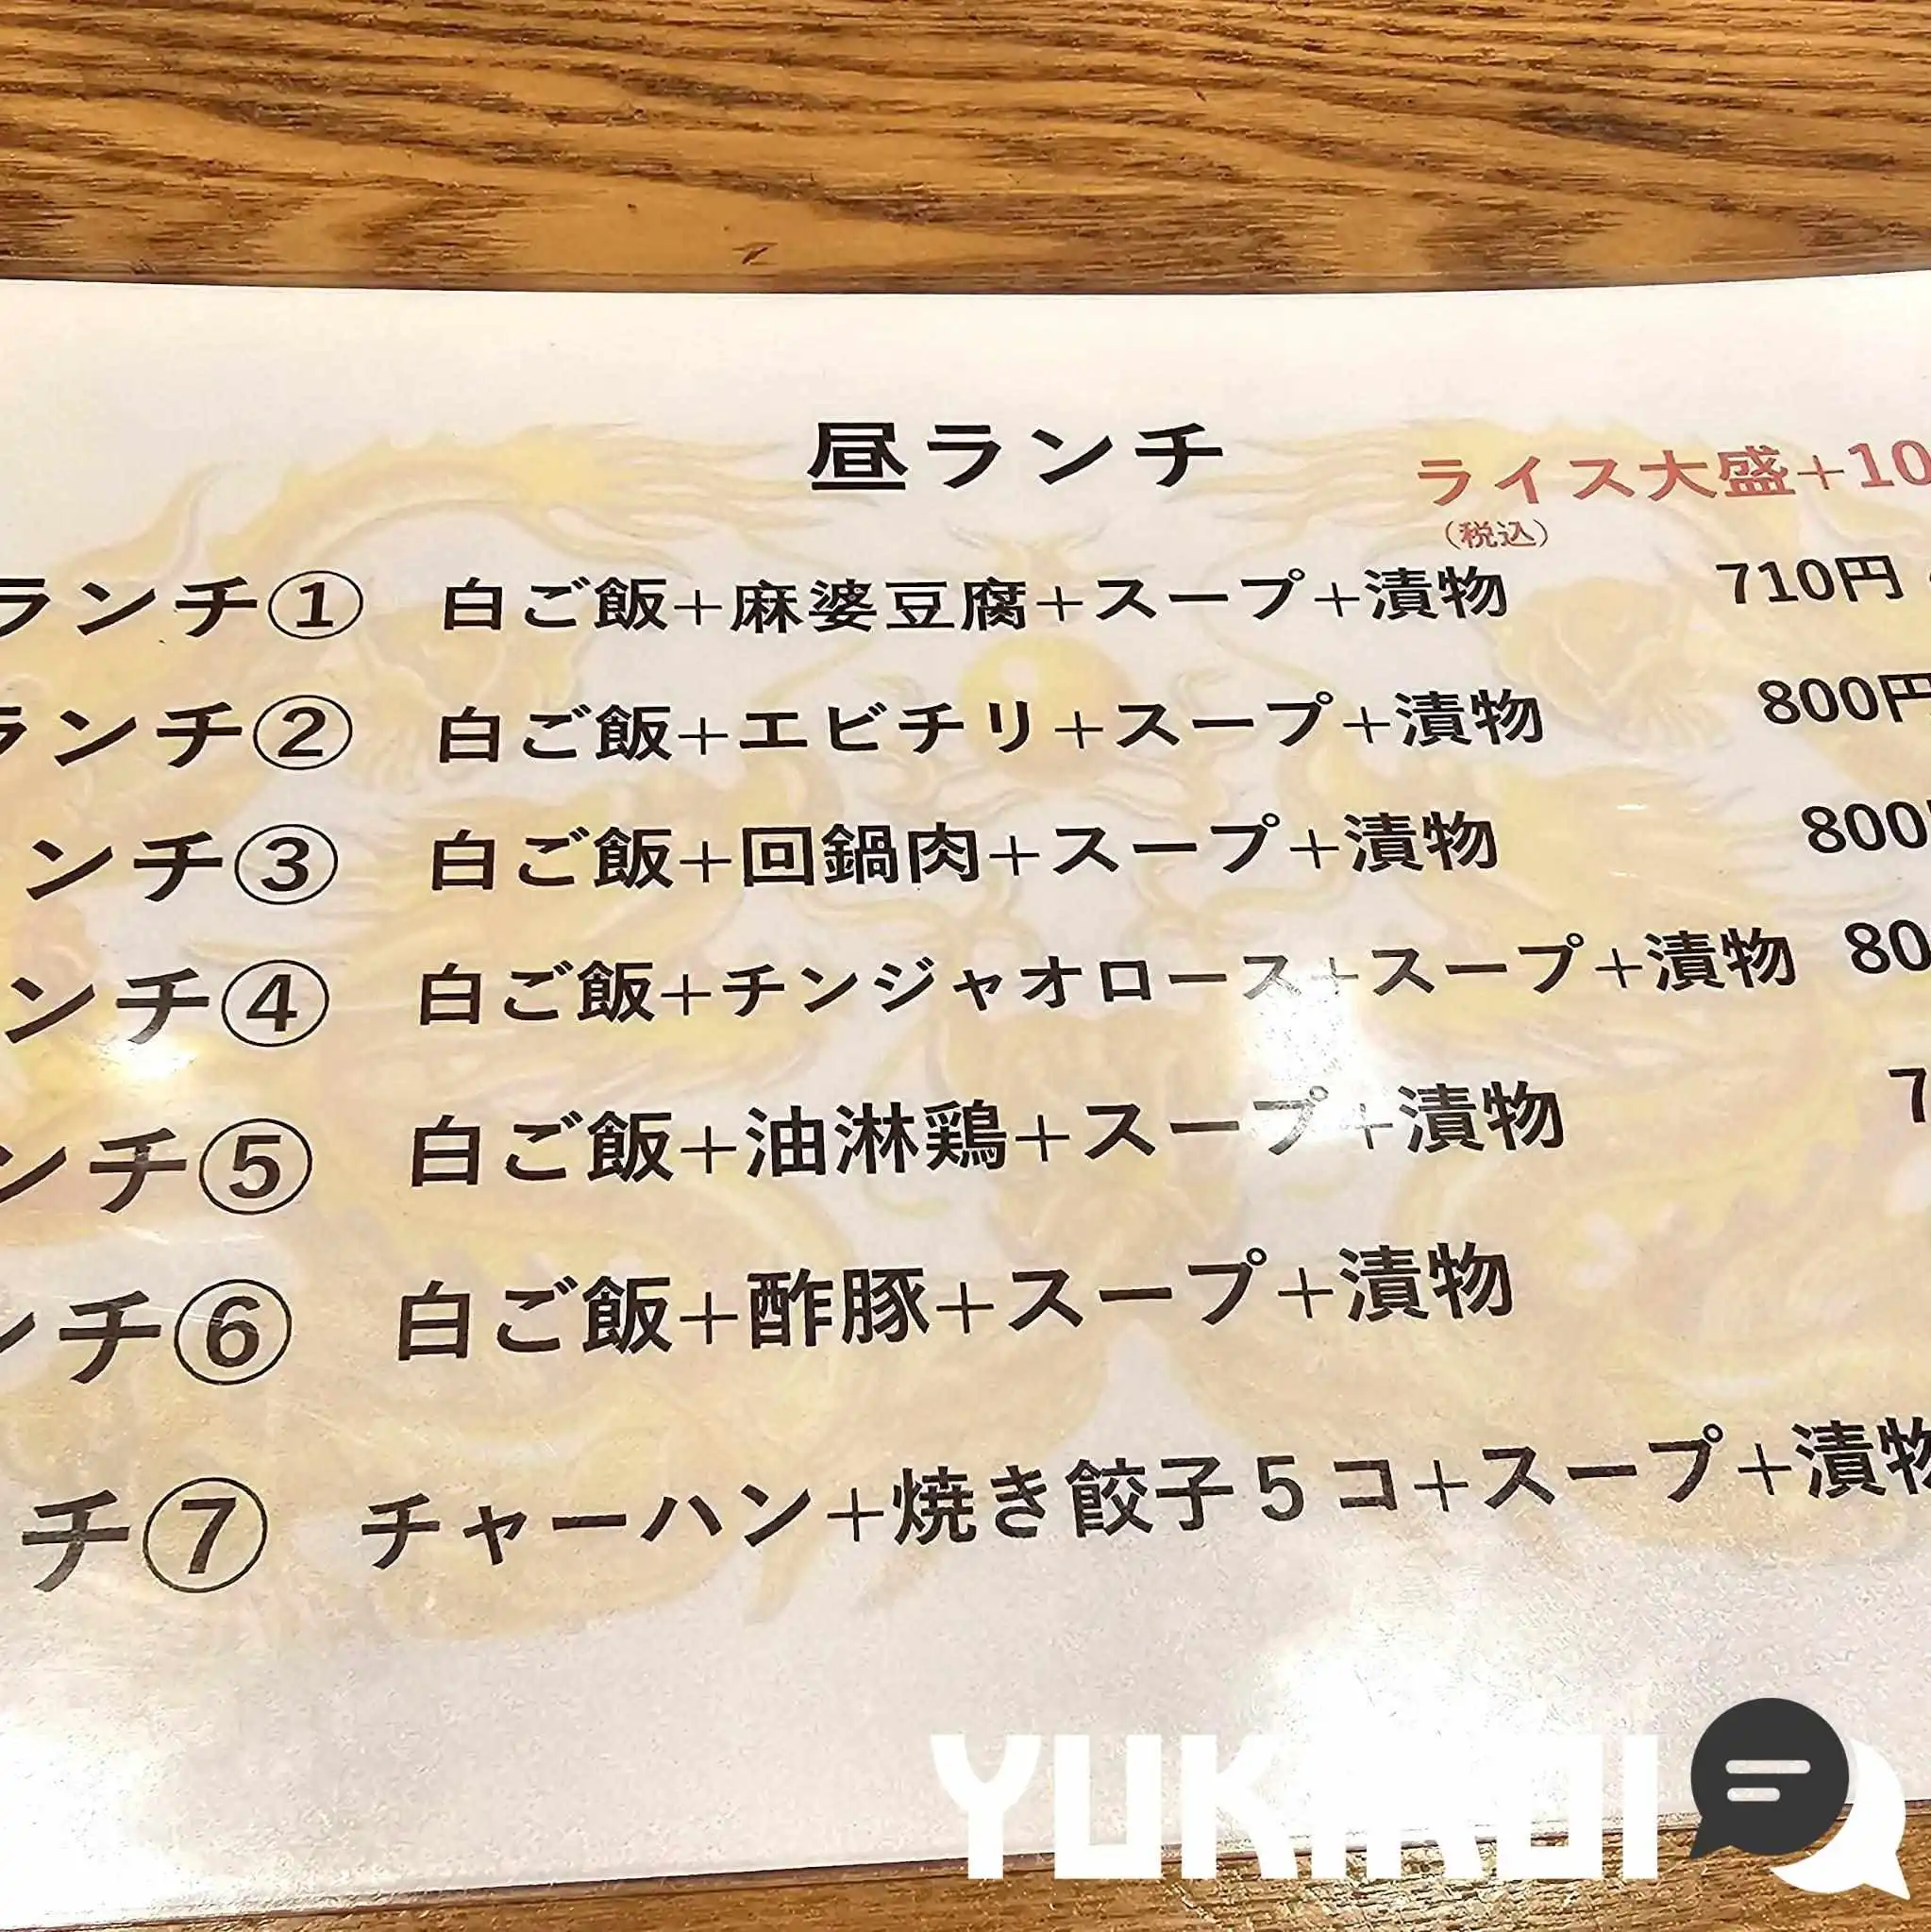 昼ランチ
ライス大盛+10
(税込)
ランチ① 白ご飯+麻婆豆腐+スープ+漬物 710円
ランチ② 白ご飯+エビチリ+スープ+漬物 800円
ンチ③ 白ご飯+回鍋肉+スープ+漬物 800
ンチ④ 白ご飯+チンジャオロース+スープ+漬物 80
ンチ⑤ 白ご飯+油淋鶏+スープ+漬物 7
ンチ⑥ 白ご飯+酢豚+スープ+漬物
チ⑦ チャーハン+焼き餃子5コ+スープ+漬物